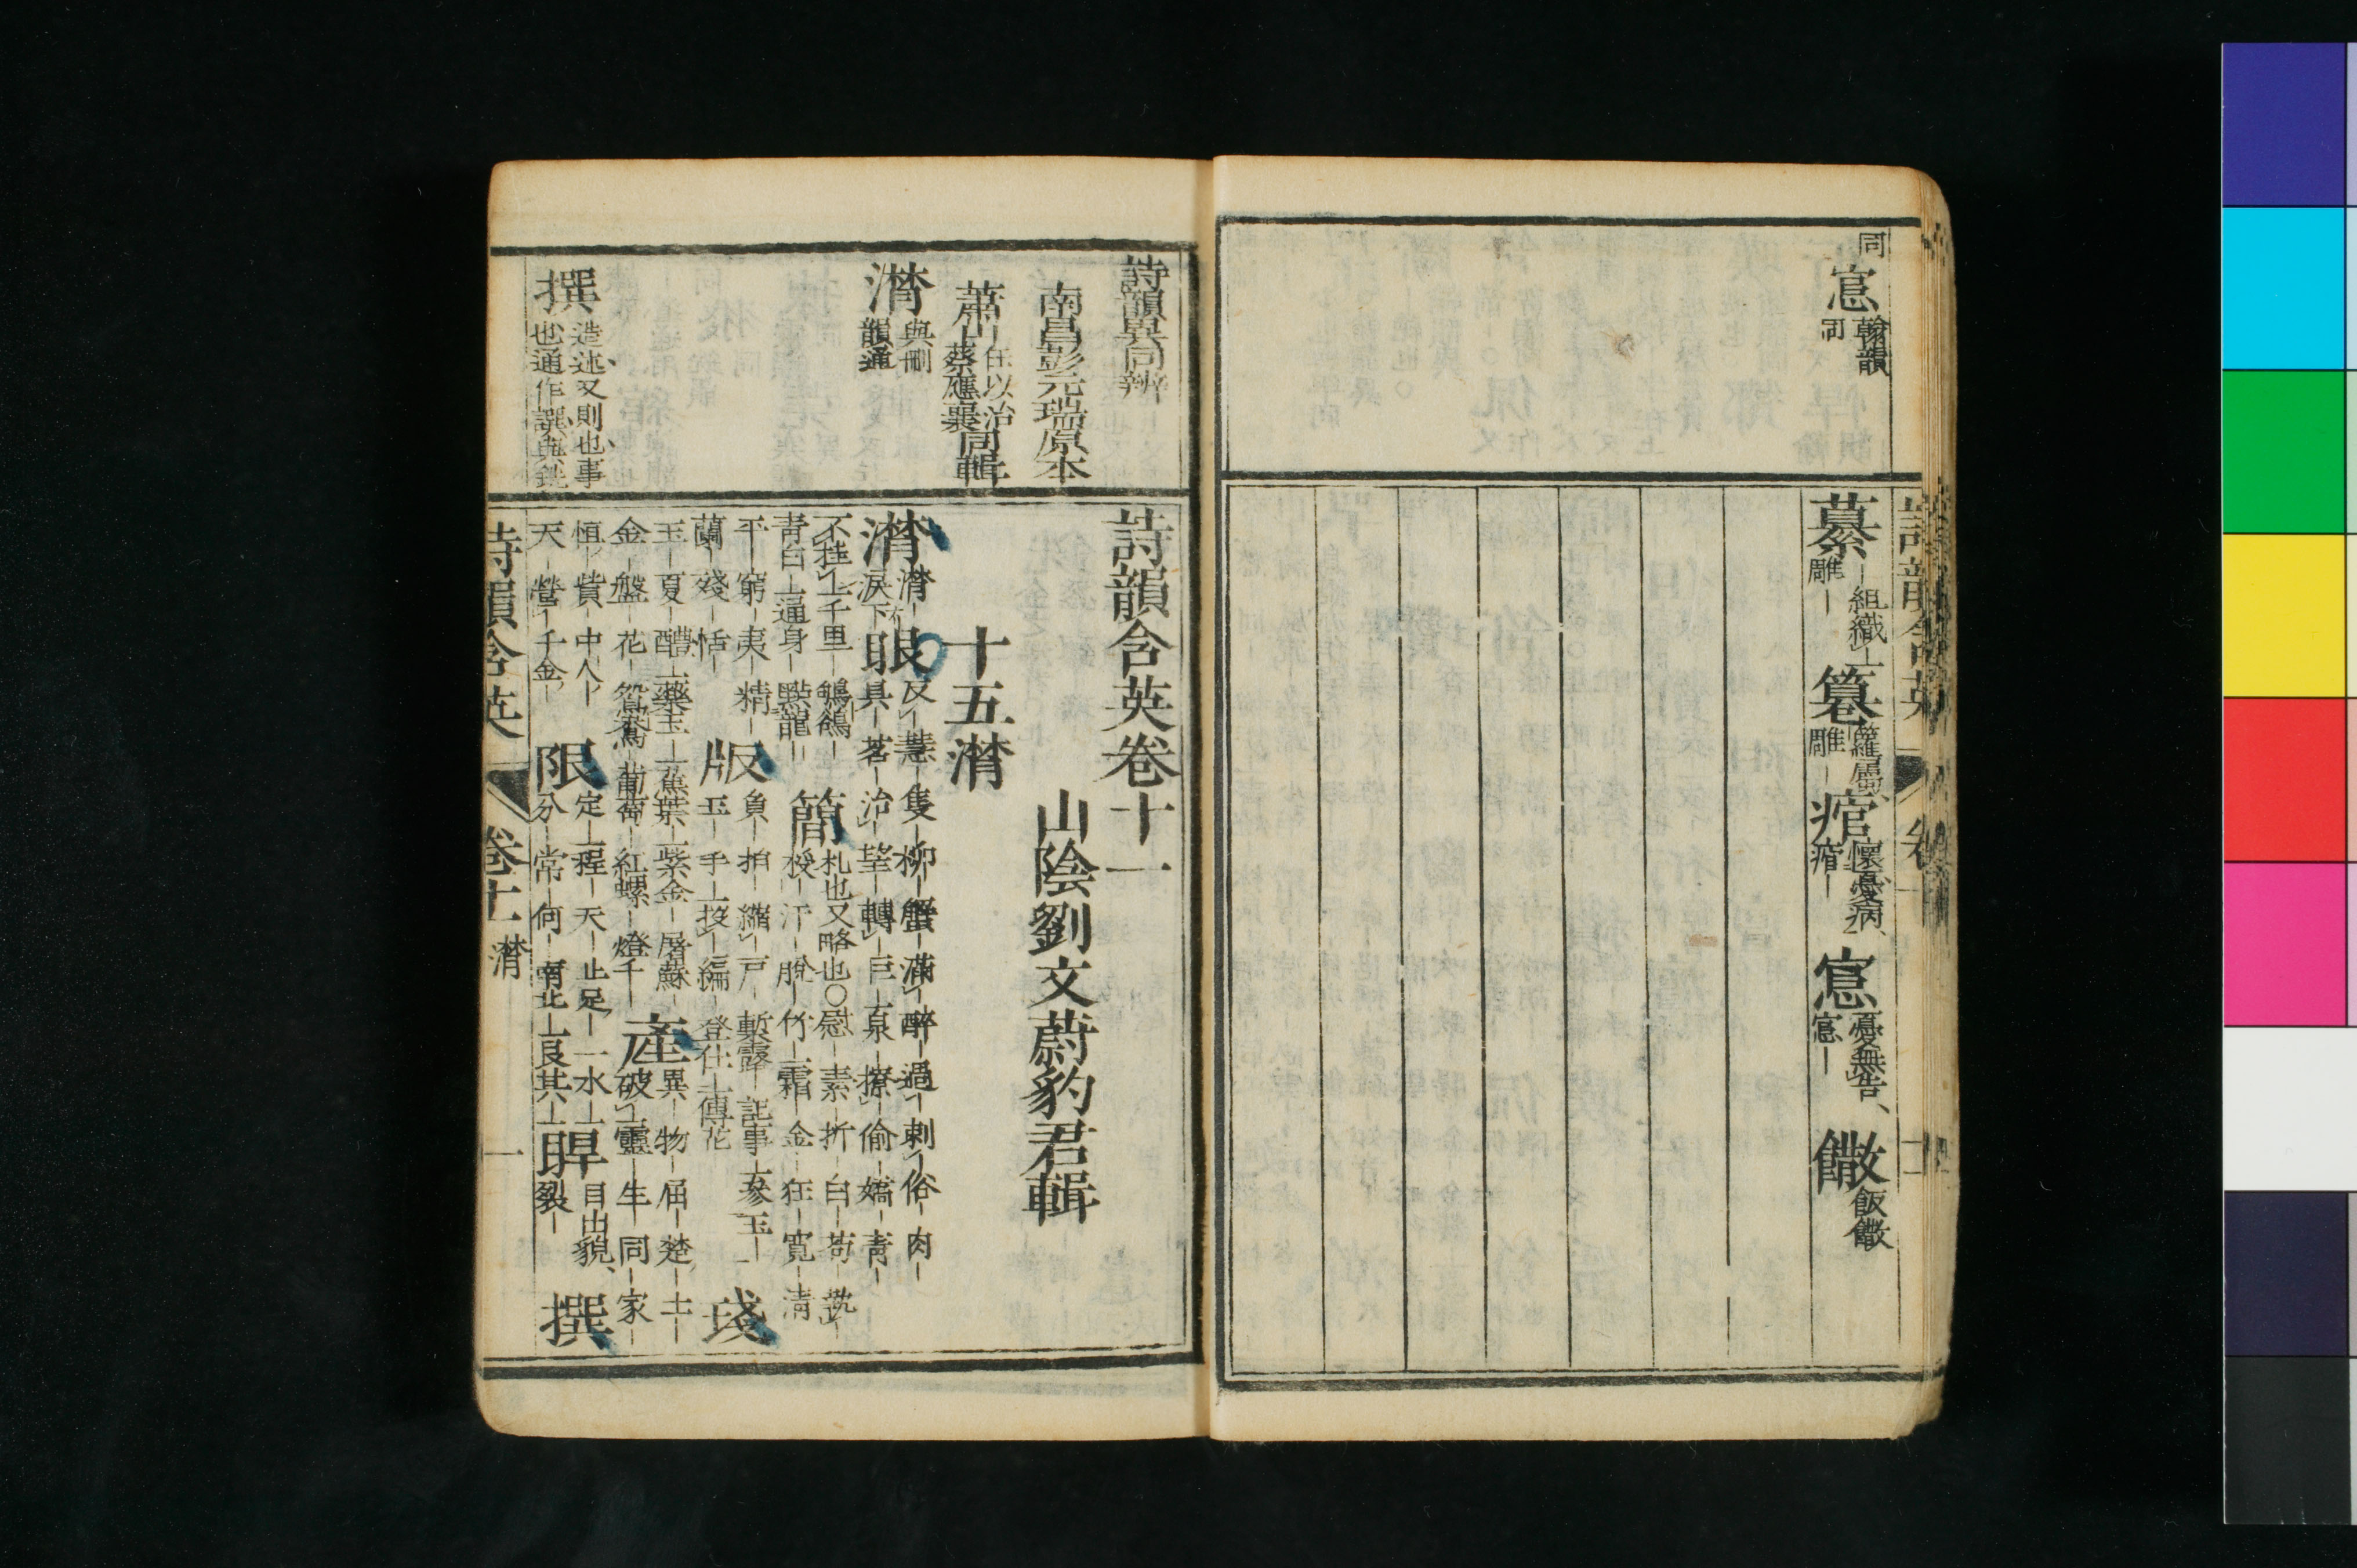 同窓翰韻同
纂組織｜雕｜簒籮屬雕｜痯懷憂病痯｜悹憂無告悹｜饊飯饊
詩韻異同辨
南昌彭元瑞原本
蕭山任以治蔡應襄同輯
潸與刪韻通
撰造述又則也事也通作譔與銑
詩韻含英卷十一
山陰劉文蔚豹君輯
十五潸
潸潸｜淚下眼反｜慧｜隻｜柳｜蟹｜滿｜醉｜過｜刺｜俗｜肉｜具｜茗｜冶｜望｜轉｜巨｜泉｜撩｜偷｜嬌｜青｜
不挂｜千里｜鵂鶹｜青白｜逼身｜點龍｜簡札也又略也○慰｜素｜折｜白｜苛｜執｜授｜汗｜脫｜竹｜霜｜金｜狂｜寬｜清｜
平｜窮｜夷｜精｜蘭｜殘｜恬｜版負｜拍｜縮｜戸｜鏨露｜記事｜蔘玉｜玉｜手｜投｜編｜登仕｜傳花｜琖
玉｜夏｜醴｜藥玉｜蕉葉｜紫金｜屠蘇｜金｜盤｜花｜鴛鴦｜葡萄｜紅螺｜燈千｜產異｜物｜屈｜楚｜土｜破｜靈｜生｜同｜家｜
恒｜貲｜中人｜天｜營｜千金｜限定｜程｜天｜止足｜一水｜分｜常｜何｜南北｜艮其｜睅目出貌裂｜撰
詩韻含英 卷十一 潸 一